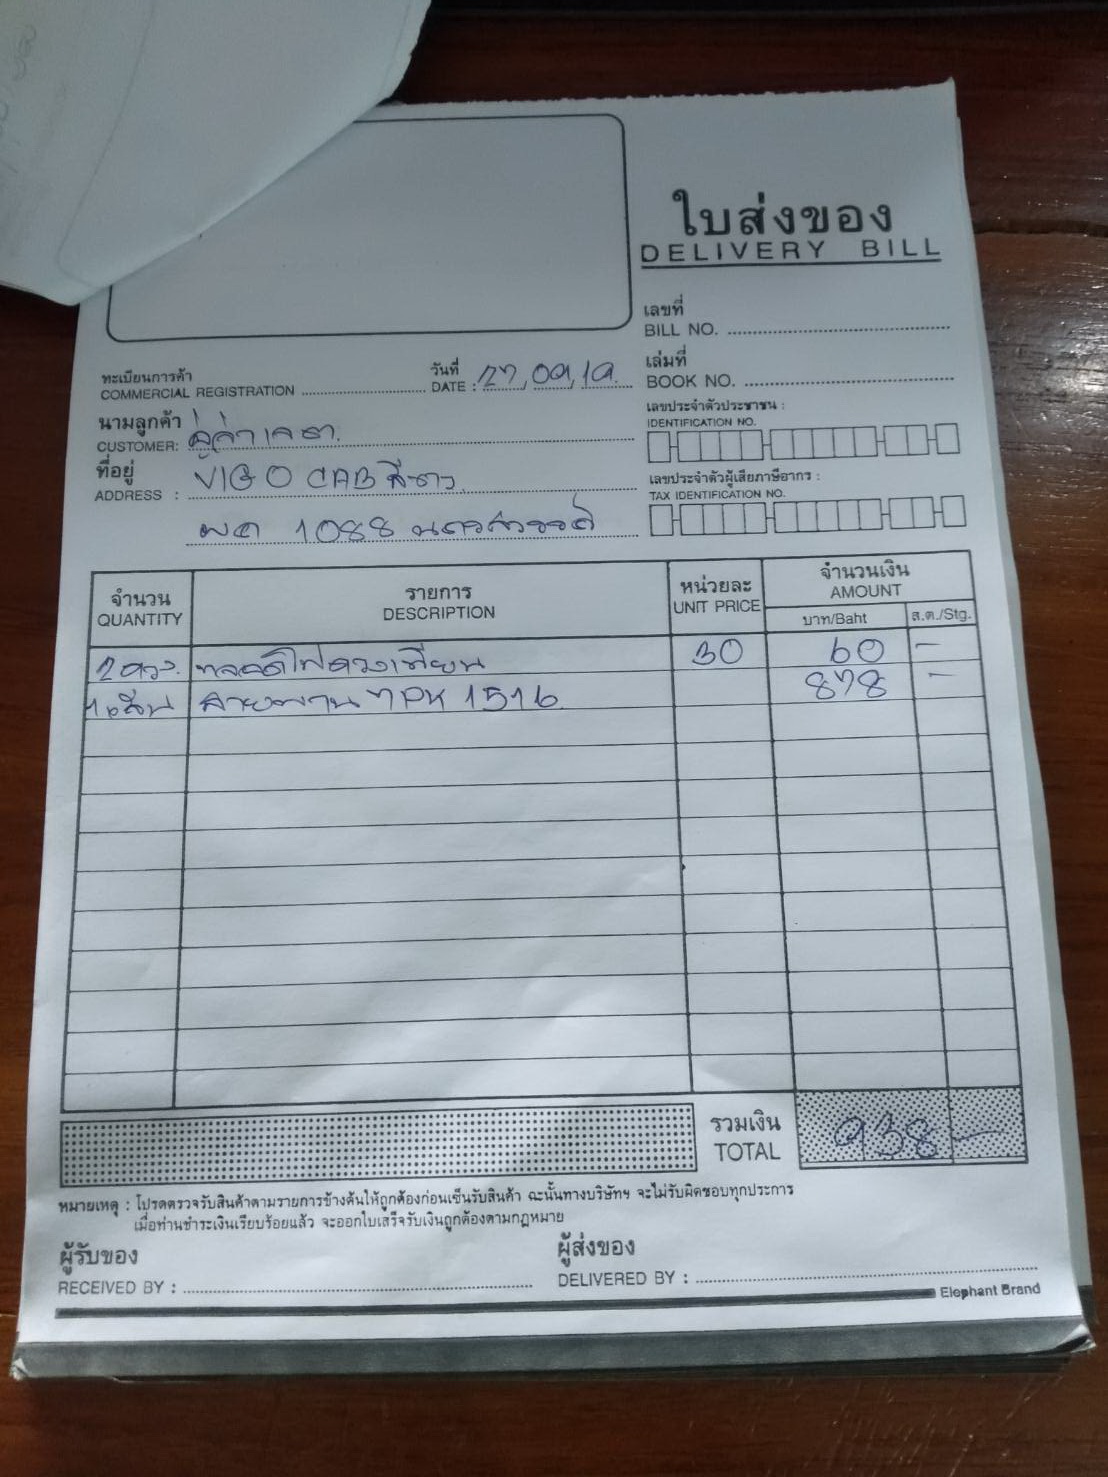 ใบส่งของ
DELIVERY BILL
เลขที่
BILL NO.
ทะเบียนการค้า
COMMERCIAL REGISTRATION
วันที่
DATE : 27, 09, 19.
เล่มที่
BOOK NO.
นามลูกค้า
CUSTOMER:
เลขประจำตัวประชาชน :
IDENTIFICATION NO.
ที่อยู่
ADDRESS : VIGO CAB สีขาว
เลขประจำตัวผู้เสียภาษีอากร :
TAX IDENTIFICATION NO.
1088 นครสวรรค์
จำนวน รายการ หน่วยละ จำนวนเงิน
QUANTITY DESCRIPTION UNIT PRICE AMOUNT
บาท/Baht ส.ต./Stg.
2 ดวง. หลอดไฟดวงเทียน 30 60 –
1 เส้น สายพาน 7PK 1516 878 –
รวมเงิน
TOTAL 938 –
หมายเหตุ : โปรดตรวจรับสินค้าตามรายการข้างต้นให้ถูกต้องก่อนเซ็นรับสินค้า ฉะนั้นทางบริษัทฯ จะไม่รับผิดชอบทุกประการ
เมื่อท่านชำระเงินเรียบร้อยแล้ว จะออกใบเสร็จรับเงินถูกต้องตามกฎหมาย
ผู้รับของ
RECEIVED BY :
ผู้ส่งของ
DELIVERED BY :
Elephant Brand